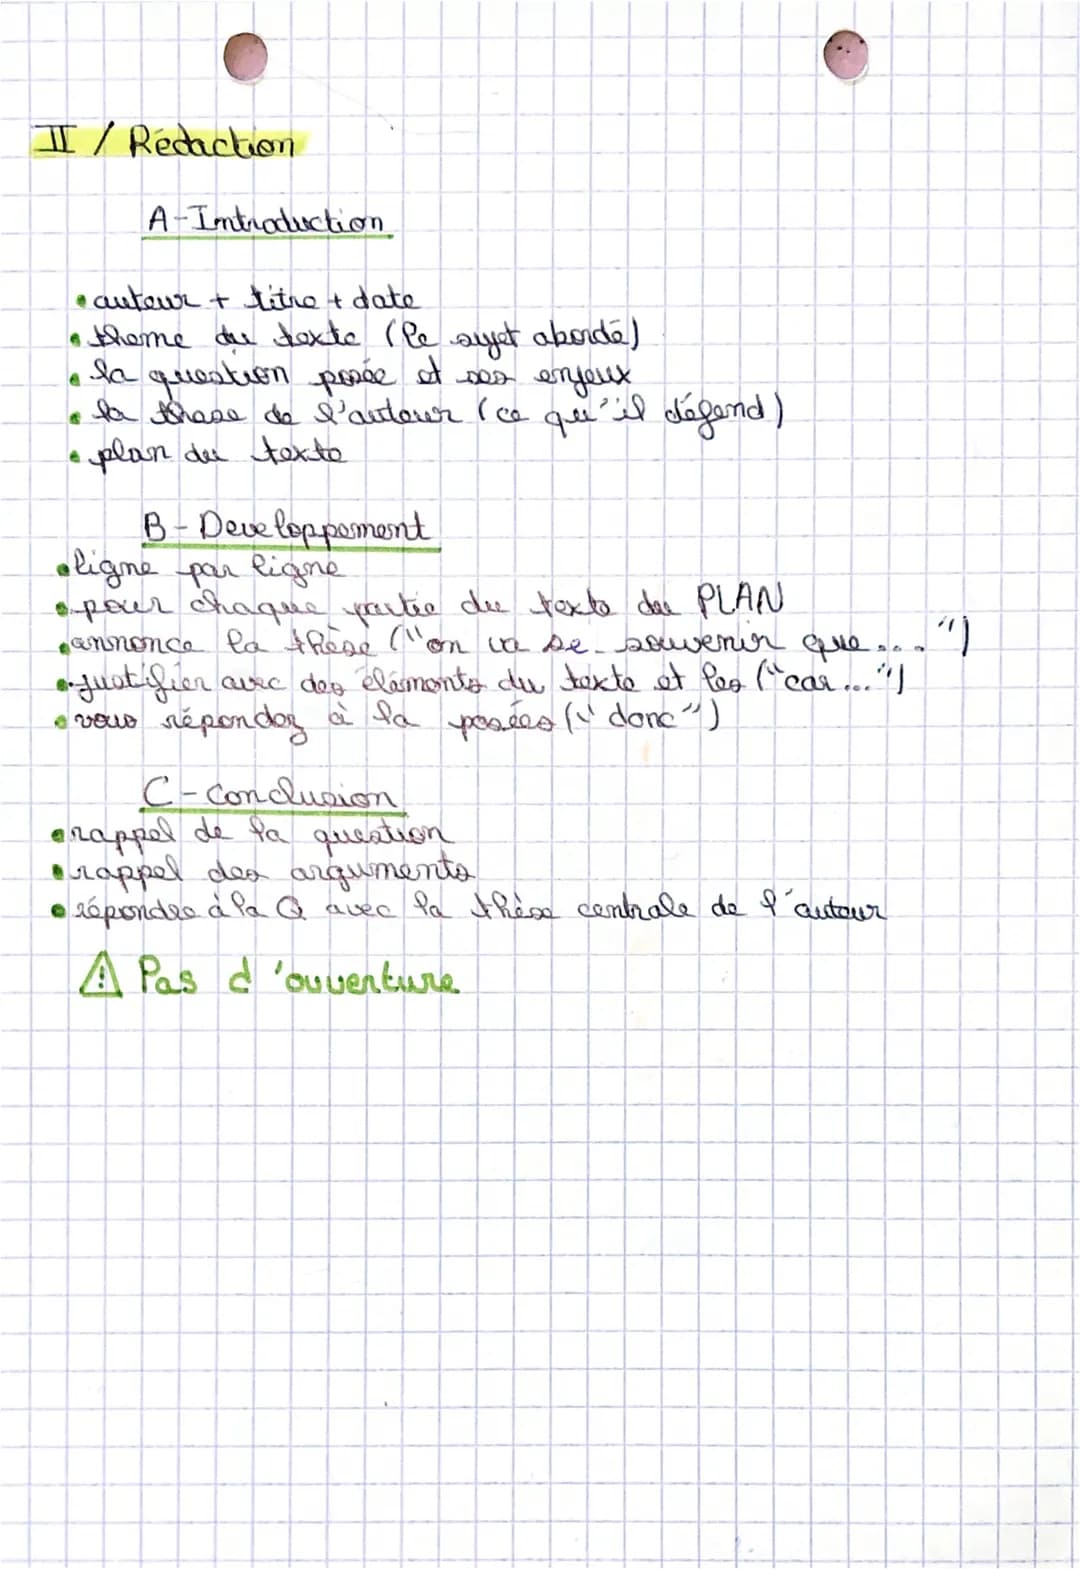 II / Rédaction
A-Introduction
• auteur + titre + date
• theme du texte (le sujet abordé)
• la question posée et ses enjeux
• la these de l'auteur (ce qu'il défend)
• plan du texte
B - Developpement
• ligne par ligne
• pour chaque partie du texte du PLAN
• annonce la thèse ("on va se souvenir que ... ")
• justifier avec des éléments du texte et les ("car ...")
• vous répondez à la posées ("donc")
C - Conclusion
• rappel de la question
• rappel des arguments
• répondre à la Q avec la thèse centrale de l'auteur
⚠ Pas d'ouverture